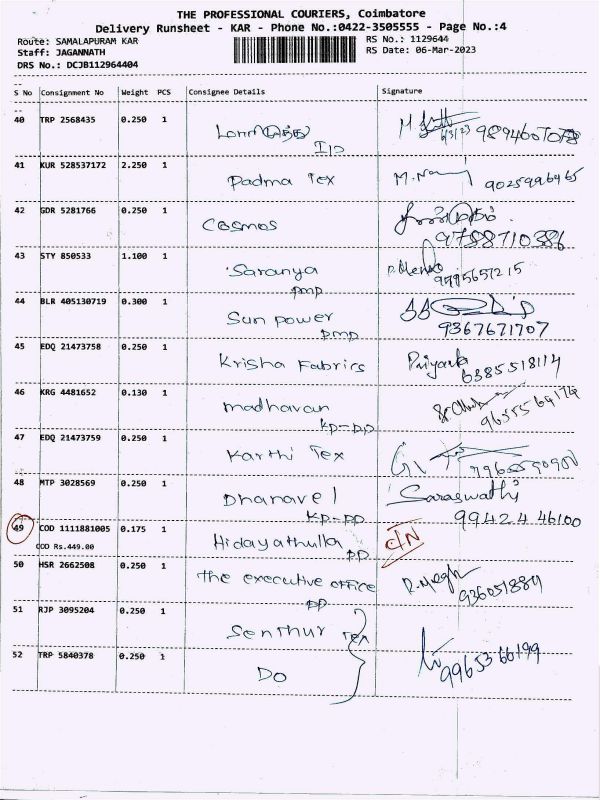 THE PROFESSIONAL COURIERS, Coimbatore
Delivery Runsheet - KAR - Phone No.:0422-3505555 - Page No.:4
Route: SAMALAPURAM KAR
RS No.: 1129644
Staff: JAGANNATH
RS Date: 06-Mar-2023
DRS No.: DCJB112964404
S No Consignment No Weight PCS Consignee Details Signature
40 TRP 2568435 0.250 1
41 KUR 528537172 2.250 1 Padma Tex 9025996965
42 GDR 5281766 0.250 1 Cosmos
9788710386
43 STY 850533 1.100 1 Saranya
pmp
44 BLR 405130719 0.300 1 Sun power
pmp 9367671707
45 EDQ 21473758 0.250 1 Krisha Fabrics Priyanka
6385518114
46 KRG 4481652 0.130 1 madhavan
kp-pp
47 EDQ 21473759 0.250 1 Karthi Tex
48 MTP 3028569 0.250 1 Dhanavel Saraswathi
kp-pp 99424 46100
49 COD 1111881005 0.175 1 Hidayathulla
COD Rs.449.00 pp
50 HSR 2662508 0.250 1 the executive office
pp
51 RJP 3095204 0.250 1 Senthur Tex
52 TRP 5840378 0.250 1 DO 9965366199